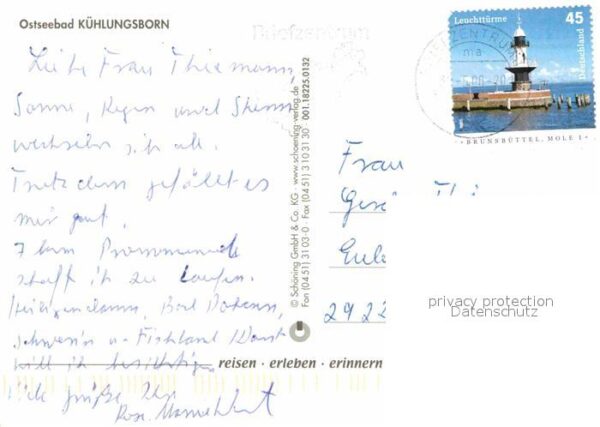 Ostseebad KÜHLUNGSBORN
Liebe Frau Thiemann,
Sonne, Regen und Sturm
wechseln sich ab.
Trotzdem gefällt es
mir gut.
7 km Promenade
schaff ich zu laufen.
Heiligendamm, Bad Doberan,
Schwerin u. Fischland Darst
will ich besichtigen
Viele Grüße Ihre
Rose
reisen · erleben · erinnern
© Schöning GmbH & Co. KG · www.schoening-verlag.de
Fon (04 51) 31 03-0 · Fax (04 51) 3 10 31 30 · 001.18225.0132
Briefzentrum
BRIEFZENTRUM
Leuchttürme 45
Deutschland
BRUNSBÜTTEL, MOLE 1
Frau
2922
privacy protection
Datenschutz